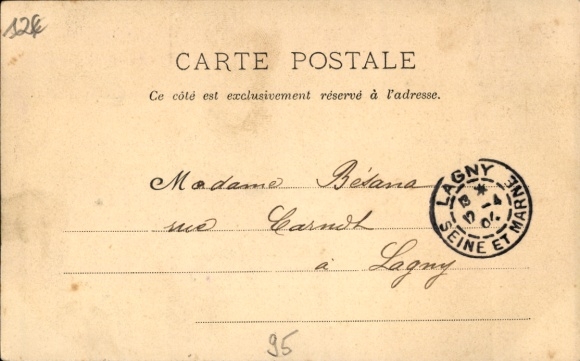 12€
CARTE POSTALE
Ce côté est exclusivement réservé à l'adresse.
Madame Bésana
rue Carnot
à Lagny
LAGNY
12 -4
04
SEINE ET MARNE
95